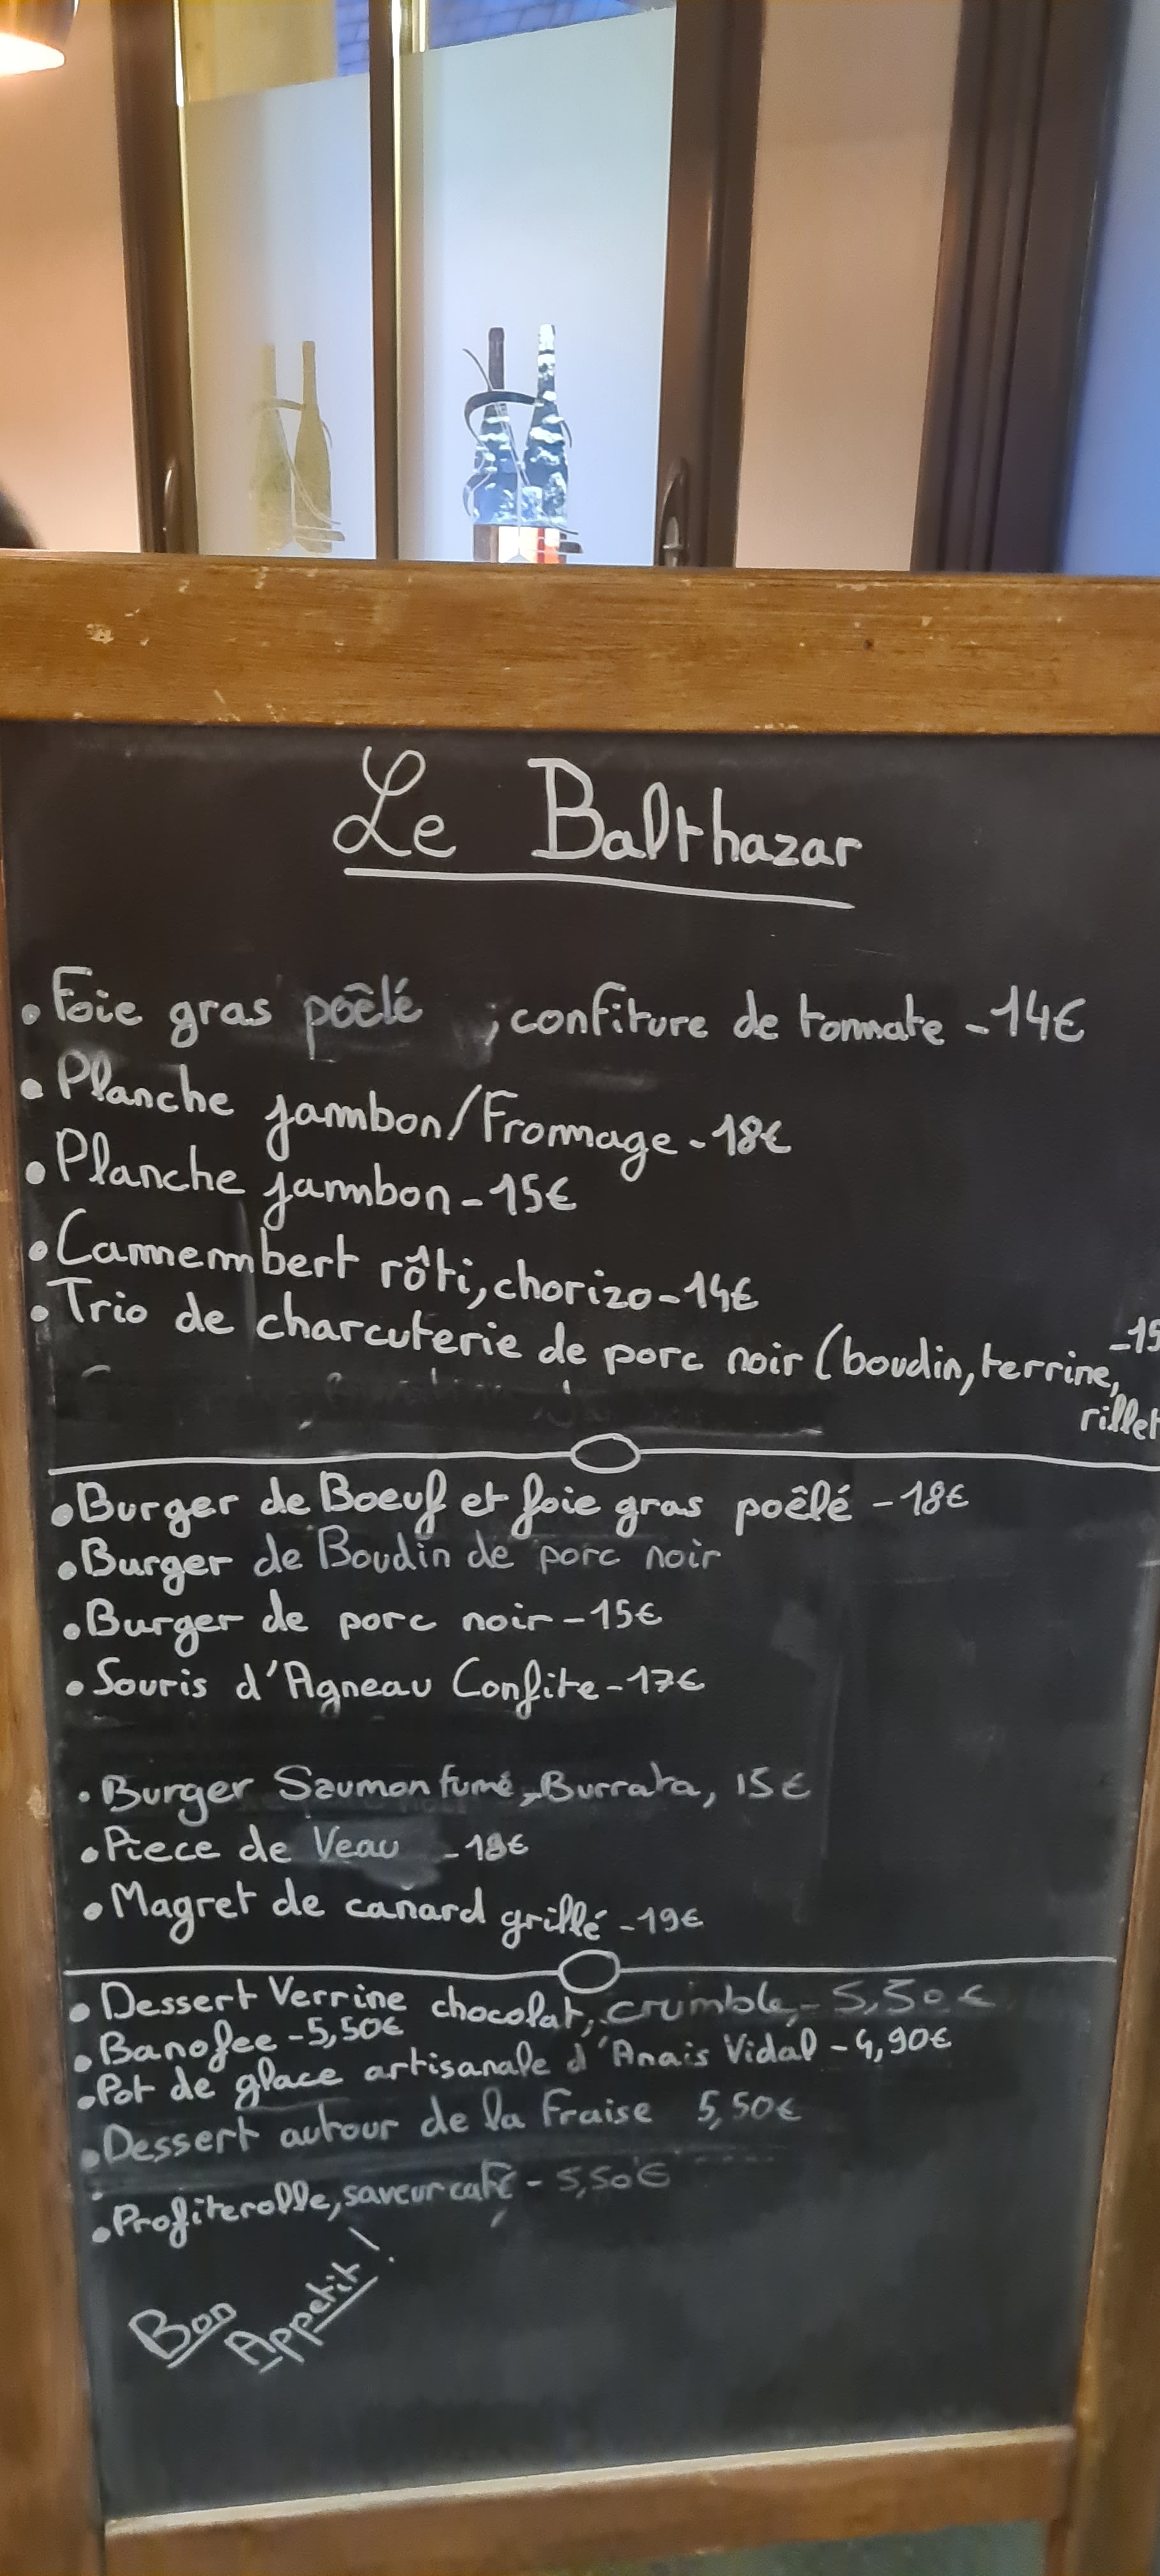 Le Balthazar
• Foie gras poêlé , confiture de tommate - 14€
• Planche jambon/Fromage - 18€
• Planche jambon - 15€
• Camembert rôti, chorizo - 14€
• Trio de charcuterie de porc noir (boudin, terrine, - 15
rillet
• Burger de Boeuf et foie gras poêlé - 18€
• Burger de Boudin de porc noir
• Burger de porc noir - 15€
• Souris d'Agneau Confite - 17€
• Burger Saumon fumé, Burrata, 15€
• Piece de Veau - 18€
• Magret de canard grillé - 19€
• Dessert Verrine chocolat, crumble, - 5,50€
• Banofee - 5,50€
• Pot de glace artisanale d'Anais Vidal - 4,90€
• Dessert autour de la Fraise 5,50€
• Profiterolle, saveur café - 5,50€
Bon
Appetit !